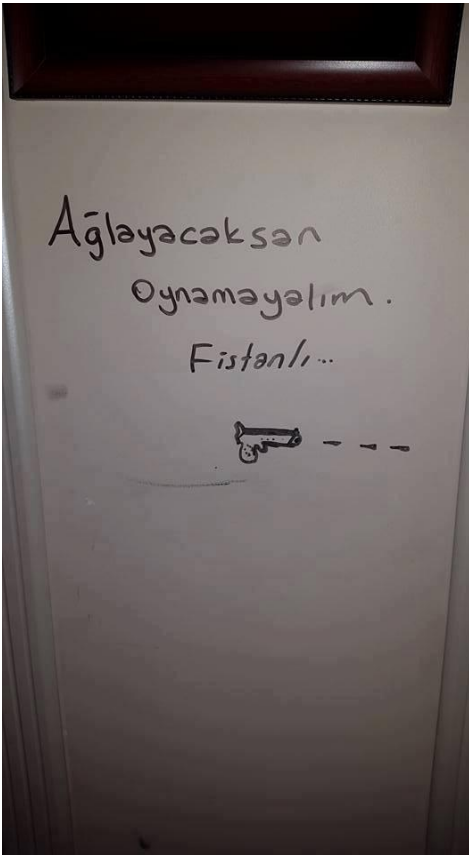 Ağlayacaksan
Oynamayalım.
Fistanlı...